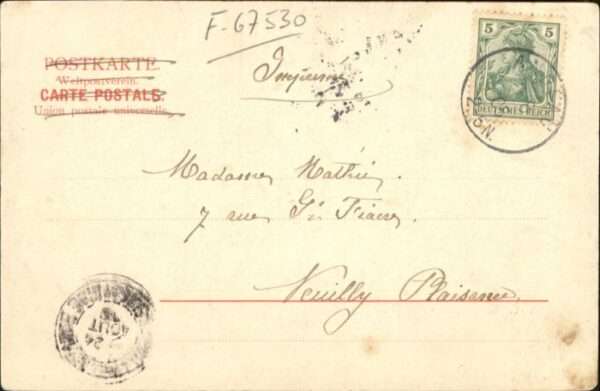 F-67530
POSTKARTE
Weltpostverein.
CARTE POSTALE
Union postale universelle.
Imprimé
5 5
DEUTSCHES REICH
Madame Mathieu
7 rue St Fiacre
Neuilly Plaisance
24
AOUT